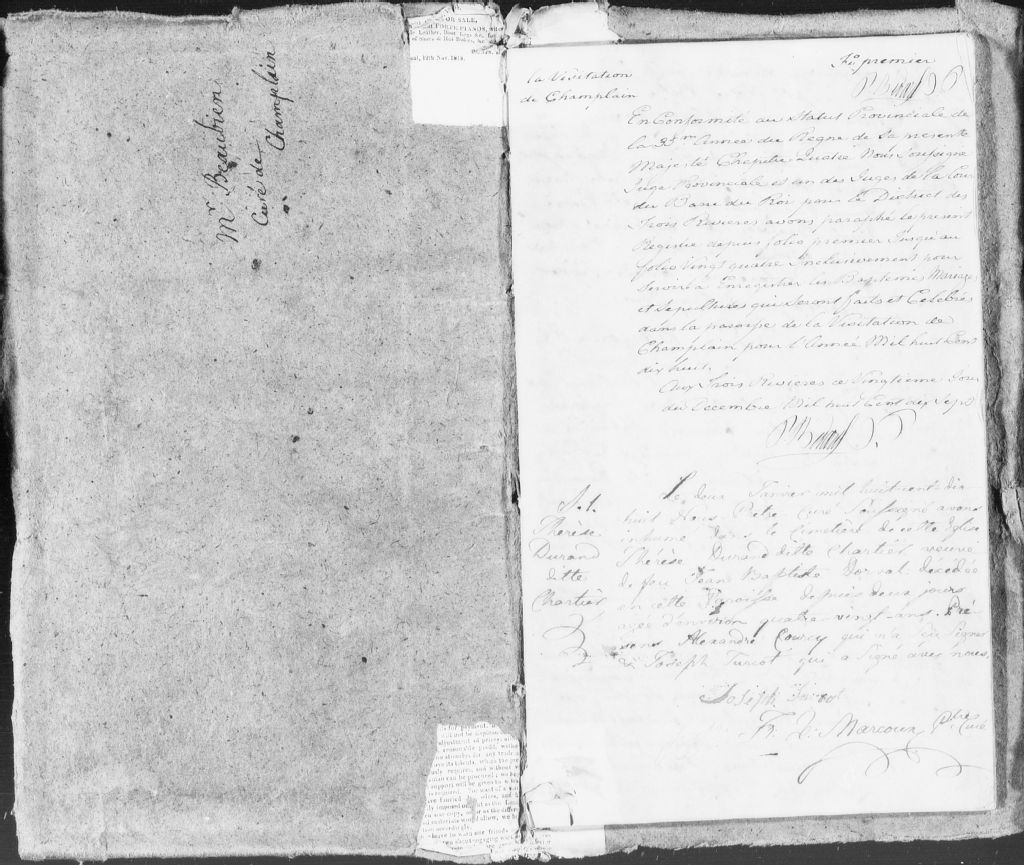 Mr Beaubien
Curé de
Champlain
FOR SALE,
FORTE PIANOS,
Leather, Boot legs &c.
12th Nov. 1816.
la Visitation
de Champlain
Fo premier
En Conformité au Statut Provinciale de
la 35me Année du Regne de Sa présente
Majesté Chapitre Quatre Nous Soussigné
Juge Provinciale et un des Juges de la Cour
du Banc du Roi pour le District des
Trois Rivieres avons paraphé le present
Registre depuis folio premier Jusqu'au
folio Vingt quatre Inclusivement pour
Servir à Enregistrer les Baptemes Mariages
et Sepultures qui Seront faits et Celebrés
dans la paroisse de la Visitation de
Champlain pour l'Année Mil huit Cent
dix huit.
Aux Trois Rivieres ce Vingtieme Jour
du Decembre Mil huit Cent dix Sept
S.1.
Thérèse
Durand
ditte
Chartier
Le deux Janvier mil huit cent dix
huit Nous Prêtre Curé Soussigné avons
inhumé dans le Cimetière de cette Eglise
Thérèse Durand ditte Chartier veuve
de feu Jean Baptiste Dorval décédée
en cette Paroisse depuis deux jours
agée d'environ quatre vingt ans. Pré-
sens Alexandre Courcy qui n'a Su Signer
& Joseph Turcot qui a Signé avec nous.
Joseph Turcot
Fr. X. Marcoux Ptre Curé